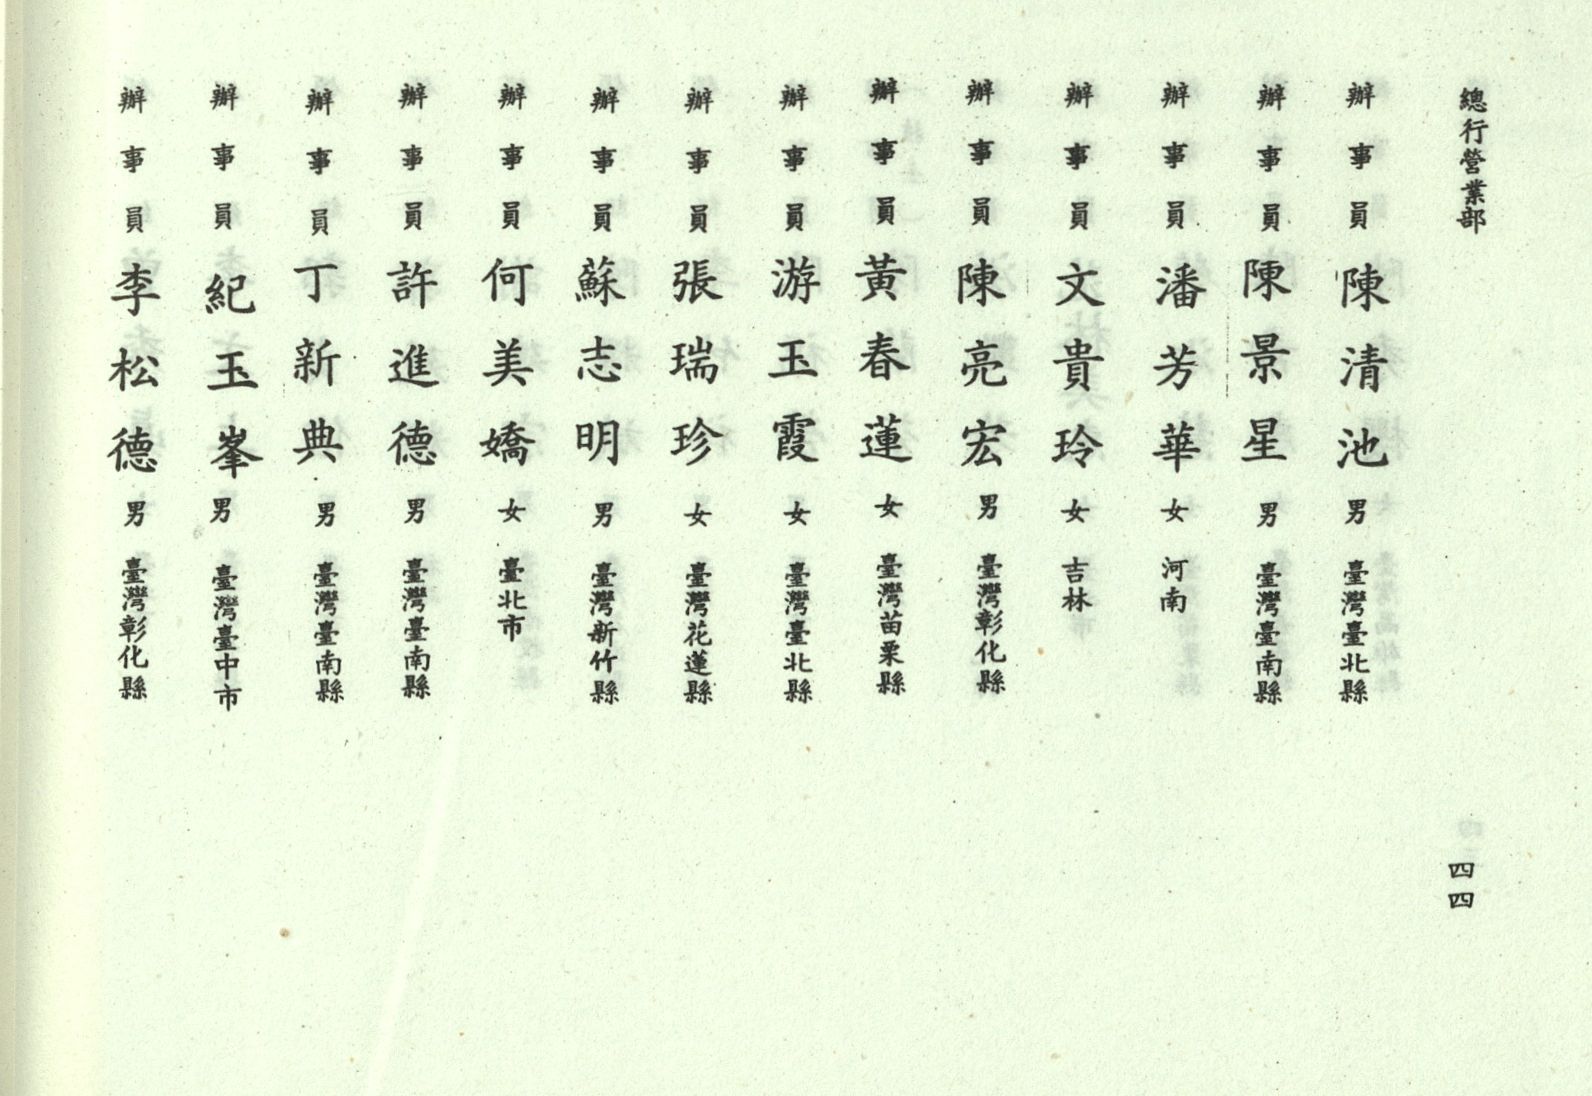 總行營業部
四四
辦事員 陳清池 男 臺灣臺北縣
辦事員 陳景星 男 臺灣臺南縣
辦事員 潘芳華 女 河南
辦事員 文貴玲 女 吉林
辦事員 陳亮宏 男 臺灣彰化縣
辦事員 黃春蓮 女 臺灣苗栗縣
辦事員 游玉霞 女 臺灣臺北縣
辦事員 張瑞珍 女 臺灣花蓮縣
辦事員 蘇志明 男 臺灣新竹縣
辦事員 何美嬌 女 臺北市
辦事員 許進德 男 臺灣臺南縣
辦事員 丁新典 男 臺灣臺南縣
辦事員 紀玉峯 男 臺灣臺中市
辦事員 李松德 男 臺灣彰化縣